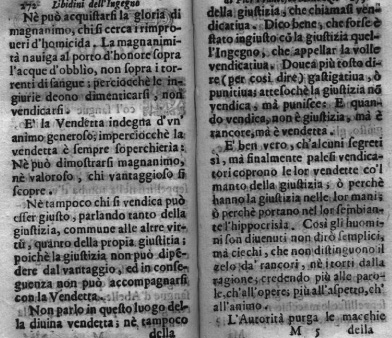 272 Libidini dell'Ingegno
Nè può acquistarsi la gloria di
magnanimo, chi si cerca i rimpro-
ueri d'homicida. La magnanimi-
tà nauiga al porto d'honore sopra
l'acque d'obblio, non sopra i tor-
renti di sangue; perciochè le in-
giurie deono dimenticarsi, non
vendicarsi.
E' la Vendetta indegna d'vn'
animo generoso; imperciocchè la
vendetta è sempre soperchieria:
Nè può dimostrarsi magnanimo,
nè valoroso, chi vantaggioso si
scopre.
Nè tampoco chi si vendica può
esser giusto, parlando tanto della
giustizia, commune alle altre vir-
tù, quanto della propia giustitia;
poichè la giustizia non può dipē-
dere dal vantaggio, ed in conse-
guenza non può accompagnarsi
con la Vendetta.
Non parlo in questo luogo del-
la diuina vendetta; nè tampoco
della
della giustizia, che chiamasi ven-
dicatiua. Dico bene, che forse è
stato ingiusto cō la giustizia quel-
l'Ingegno, che appellar la volle
vendicatiua. Douea più tosto di-
re (per così dire) gastigatiua, ò
punitiua; attesochè la giustizia nō
vendica, mà punisce: E quan-
do vendica, non è giustizia, mà è
rancore, mà è vendetta.
E' ben vero, ch'alcuni segreti
sì, mà finalmente palesi vendica-
tori coprono le lor vendette co'l
manto della giustizia; ò perchè
hanno la giustizia nelle lor mani;
ò perchè portano nel lor sembian-
te l'hippocrisia. Così gli huomi-
ni son diuenuti non dirò semplici,
mà ciechi, che non distinguono il
zelo da' rancori, nè i torti dalla
ragione, credendo più alle paro-
le, ch'all'opere; più all'aspetto, ch'
all'animo.
L'Autorità purga le macchie
M 5 della